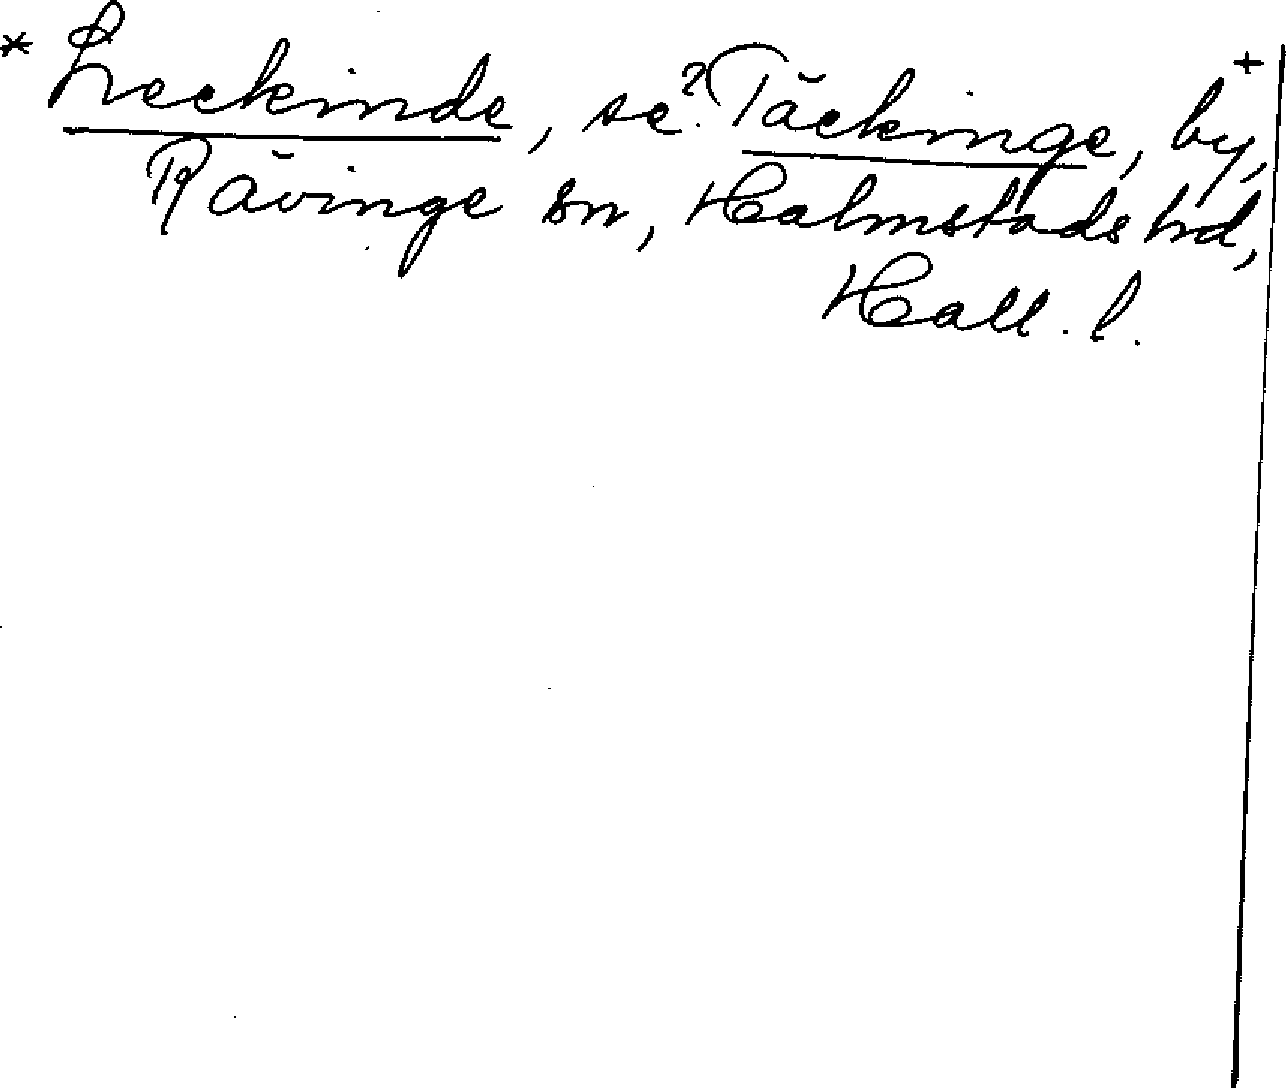 * Leckinde, se? Täckinge, by, +
Rävinge sn, Halmstads hd,
Hall. l.